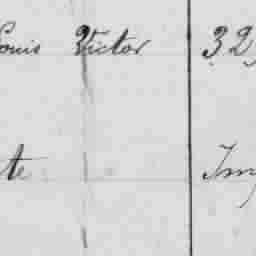 Louis Victor 32
te Im